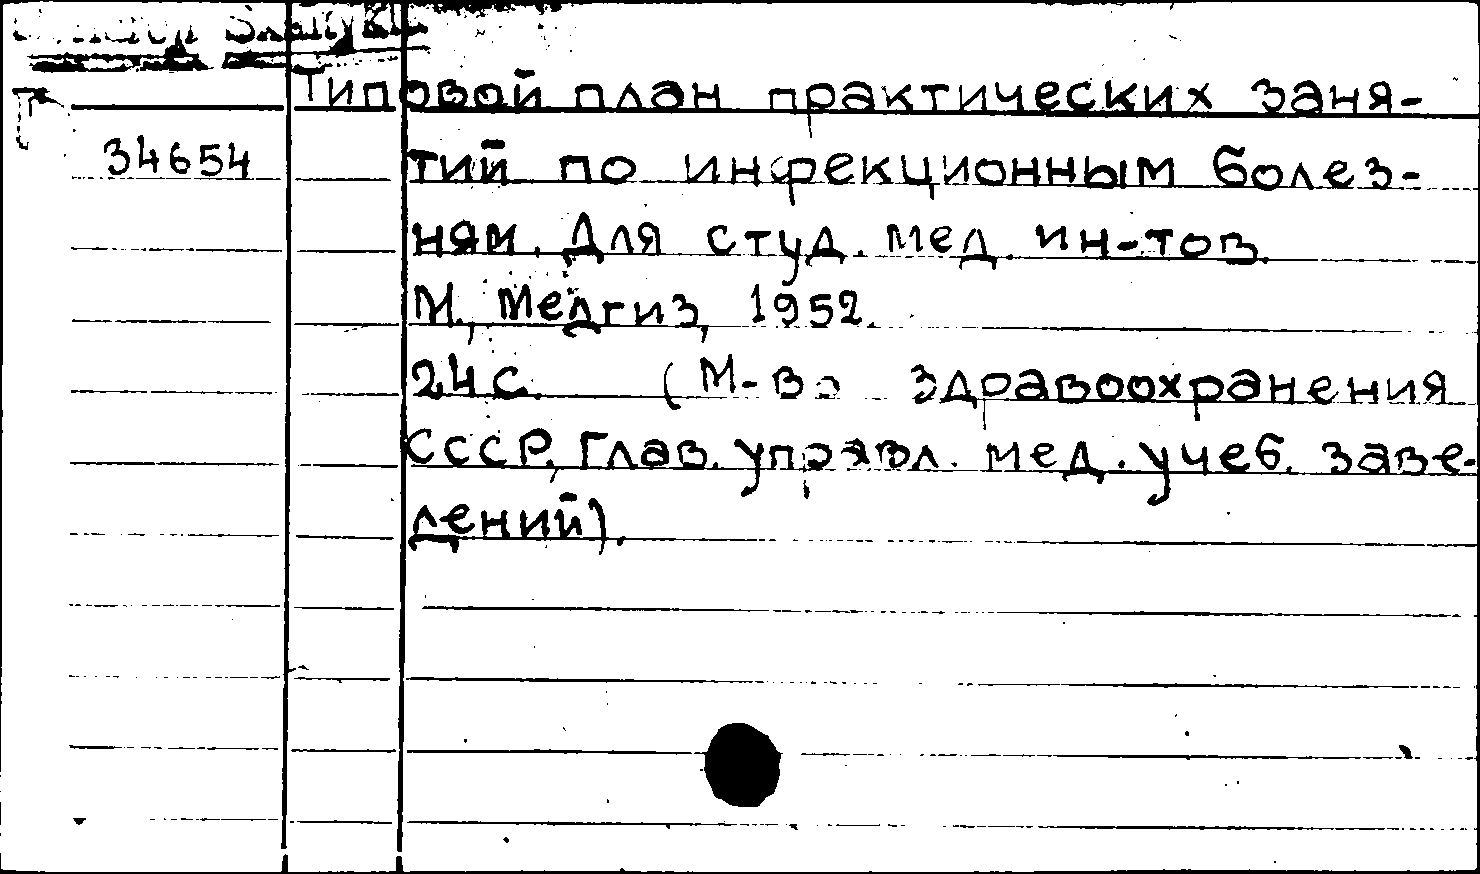 Типовой план практических заня-
34654 тий по инфекционным болез-
ням. Для студ. мед. ин-тов.
М., Медгиз, 1952.
24 с. (М-во здравоохранения
СССР, Глав. управл. мед. учеб. заве-
дений).